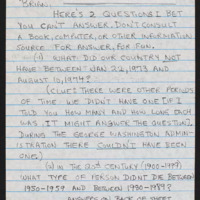 BRIN,
HERE'S 2 QUESTIONS I BET
YOU CAN'T ANSWER. DON'T CONSULT
A BOOK, COMPUTER, OR OTHER INFORMATION
SOURCE FOR ANSWER, FOR FUN.
(1) WHAT DID OUR COUNTRY NOT
HAVE BETWEEN JAN 22, 1973 AND
AUGUST 10, 1974?
(CLUE: THERE WERE OTHER PERIODS
OF TIME WE DIDN'T HAVE ONE. IF I
TOLD YOU HOW MANY AND HOW LONG EACH
WAS, IT MIGHT ANSWER THE QUESTION.
DURING THE GEORGE WASHINGTON ADMIN-
ISTRATION THERE COULDN'T HAVE BEEN
ONE.)
(2) IN THE 20TH CENTURY (1900-1999)
WHAT TYPE OF PERSON DIDN'T DIE BETWEEN
1950-1959 AND BETWEEN 1980-1989?
ANSWERS ON BACK OF SHEET